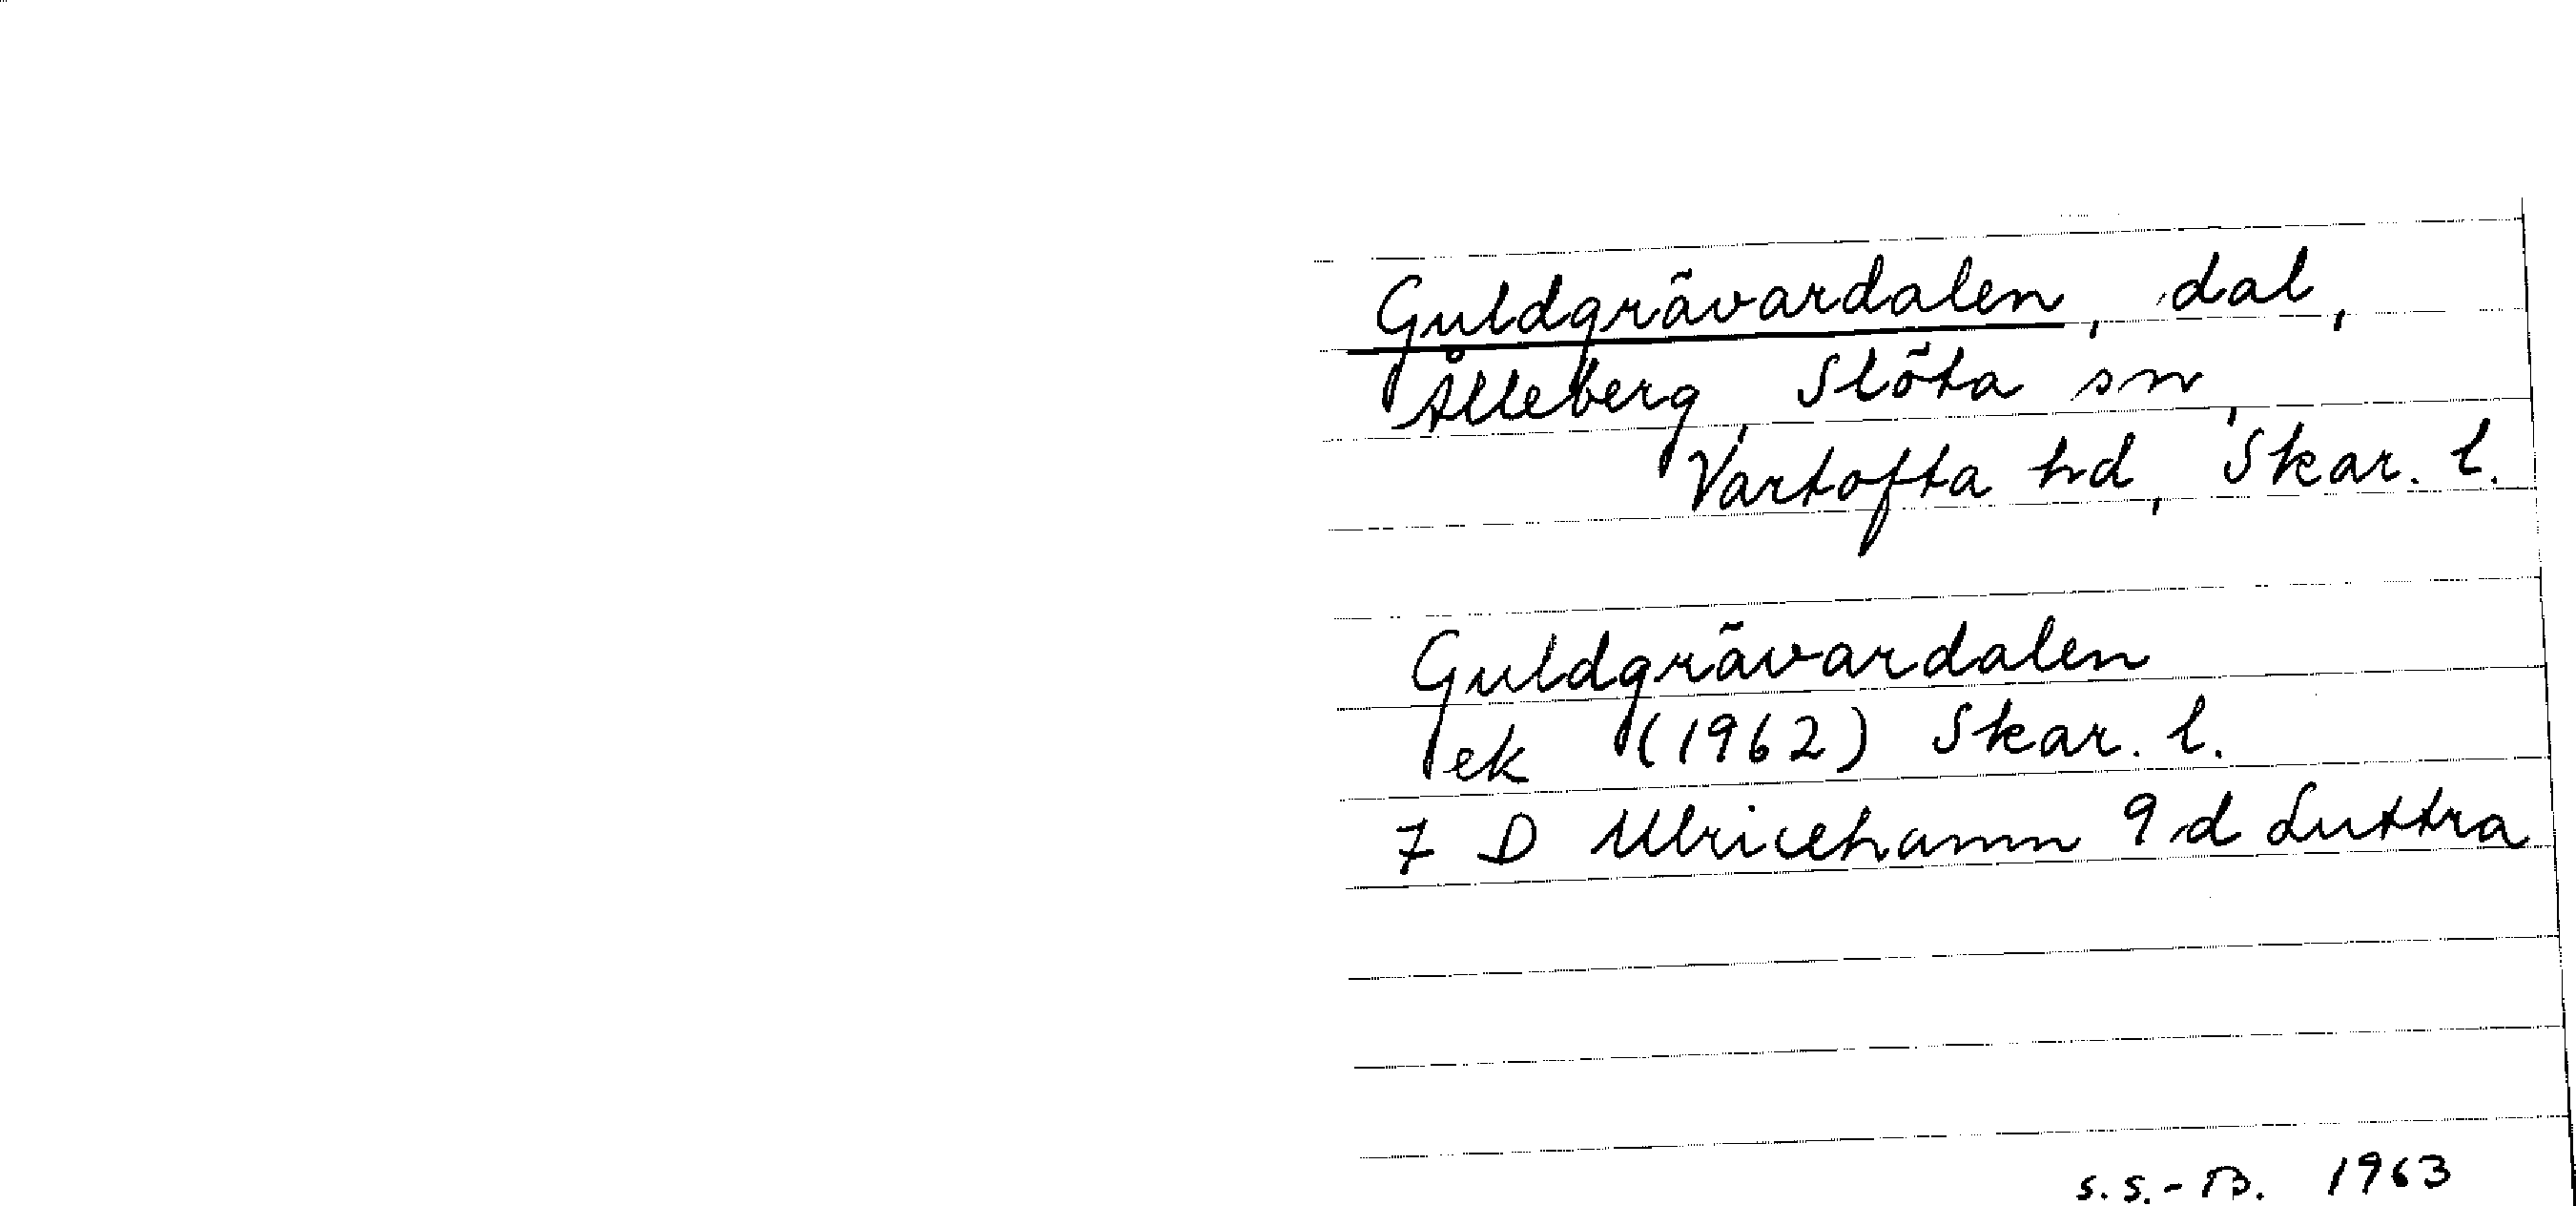 Guldgrävardalen, dal,
Ålleberg, Slöta sn,
Vartofta hd, Skar. l.
Guldgrävardalen
ek (1962) Skar. l.
7 D Ulricehamn 9 d Luttra
S.S.-B. 1963